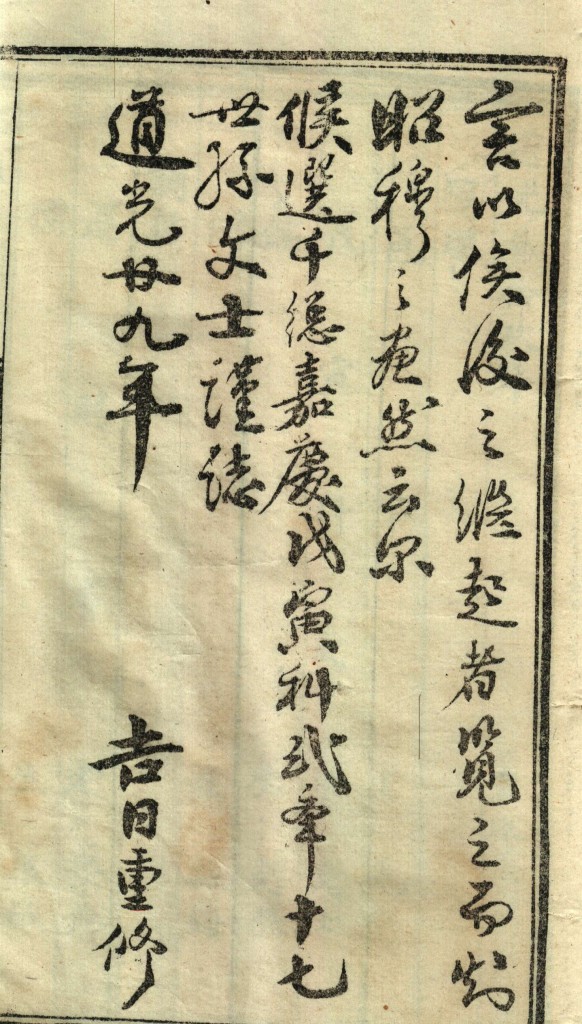 言以俟後之繼起者覽之而判
昭穆之画然云尔
候選千総嘉慶戊寅科武举十七
世孫文士謹誌
道光廿九年 吉日重修